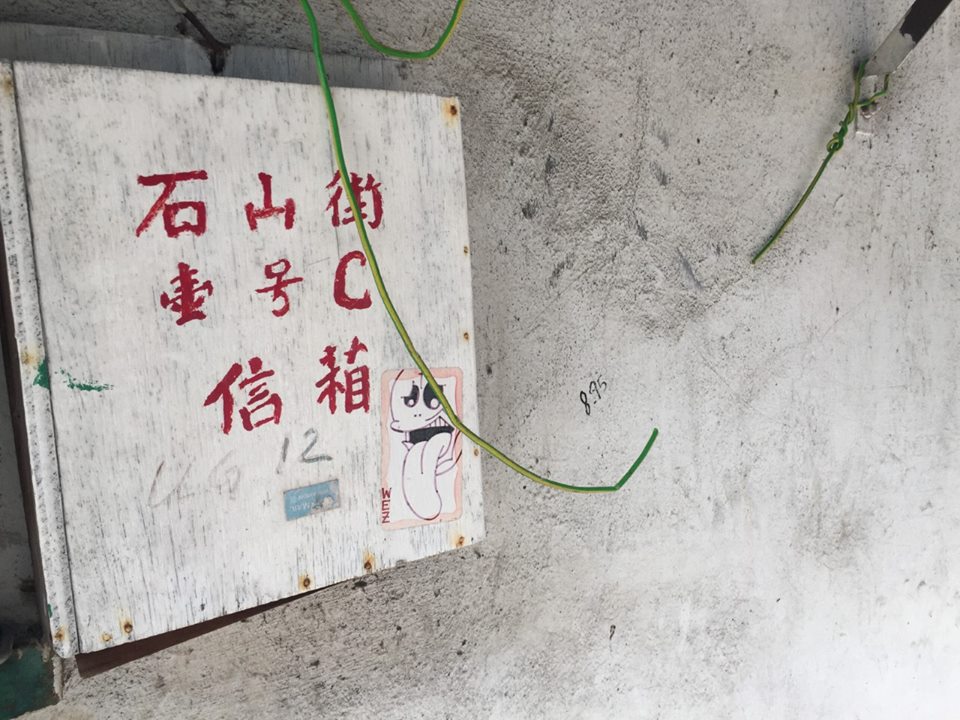 石山街
壹号C
信箱
12
WEZ
8.95